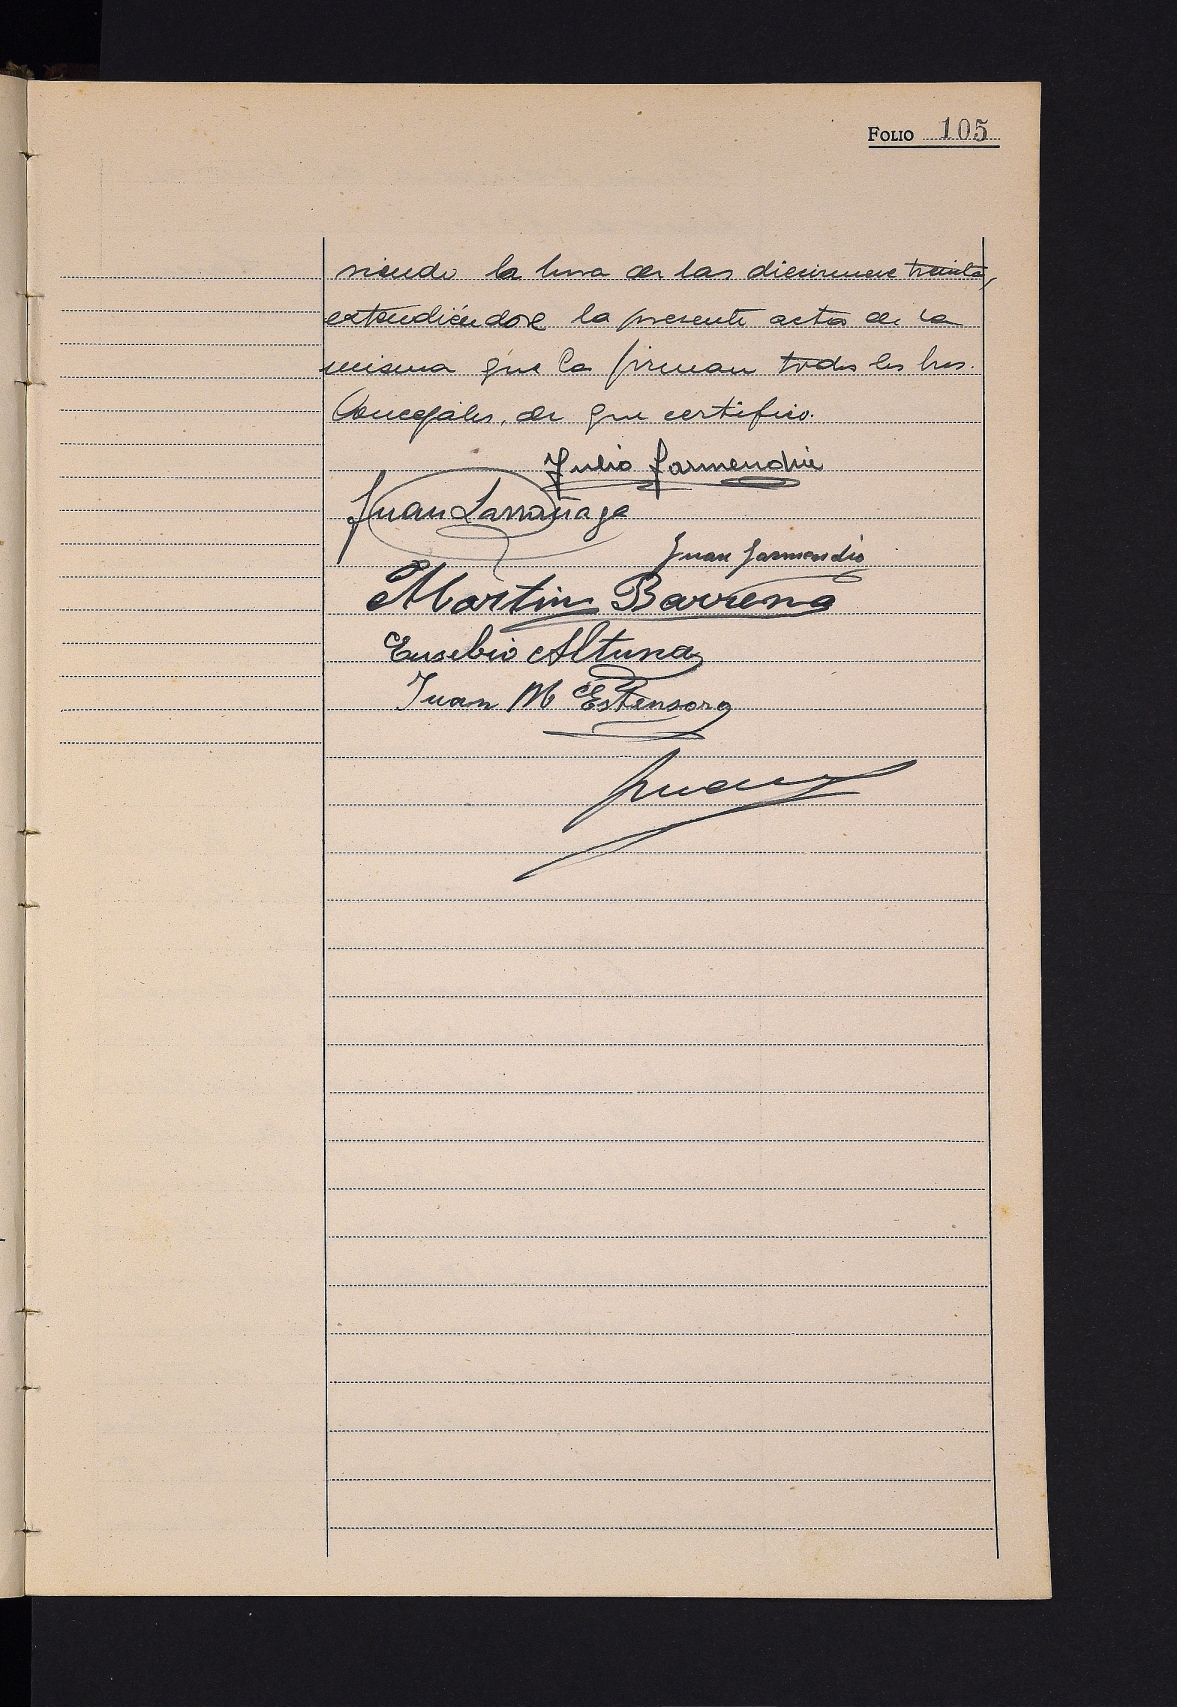 FOLIO 105
siendo la hora de las diecinueve treinta,
extendiéndose la presente acta de la
misma que la firman todos los Sres.
Concejales, de que certifico.
Julio Garmendia
Juan Larrañaga
Juan Garmendia
Martin Barrena
Eusebio Altuna
Juan M Estensoro